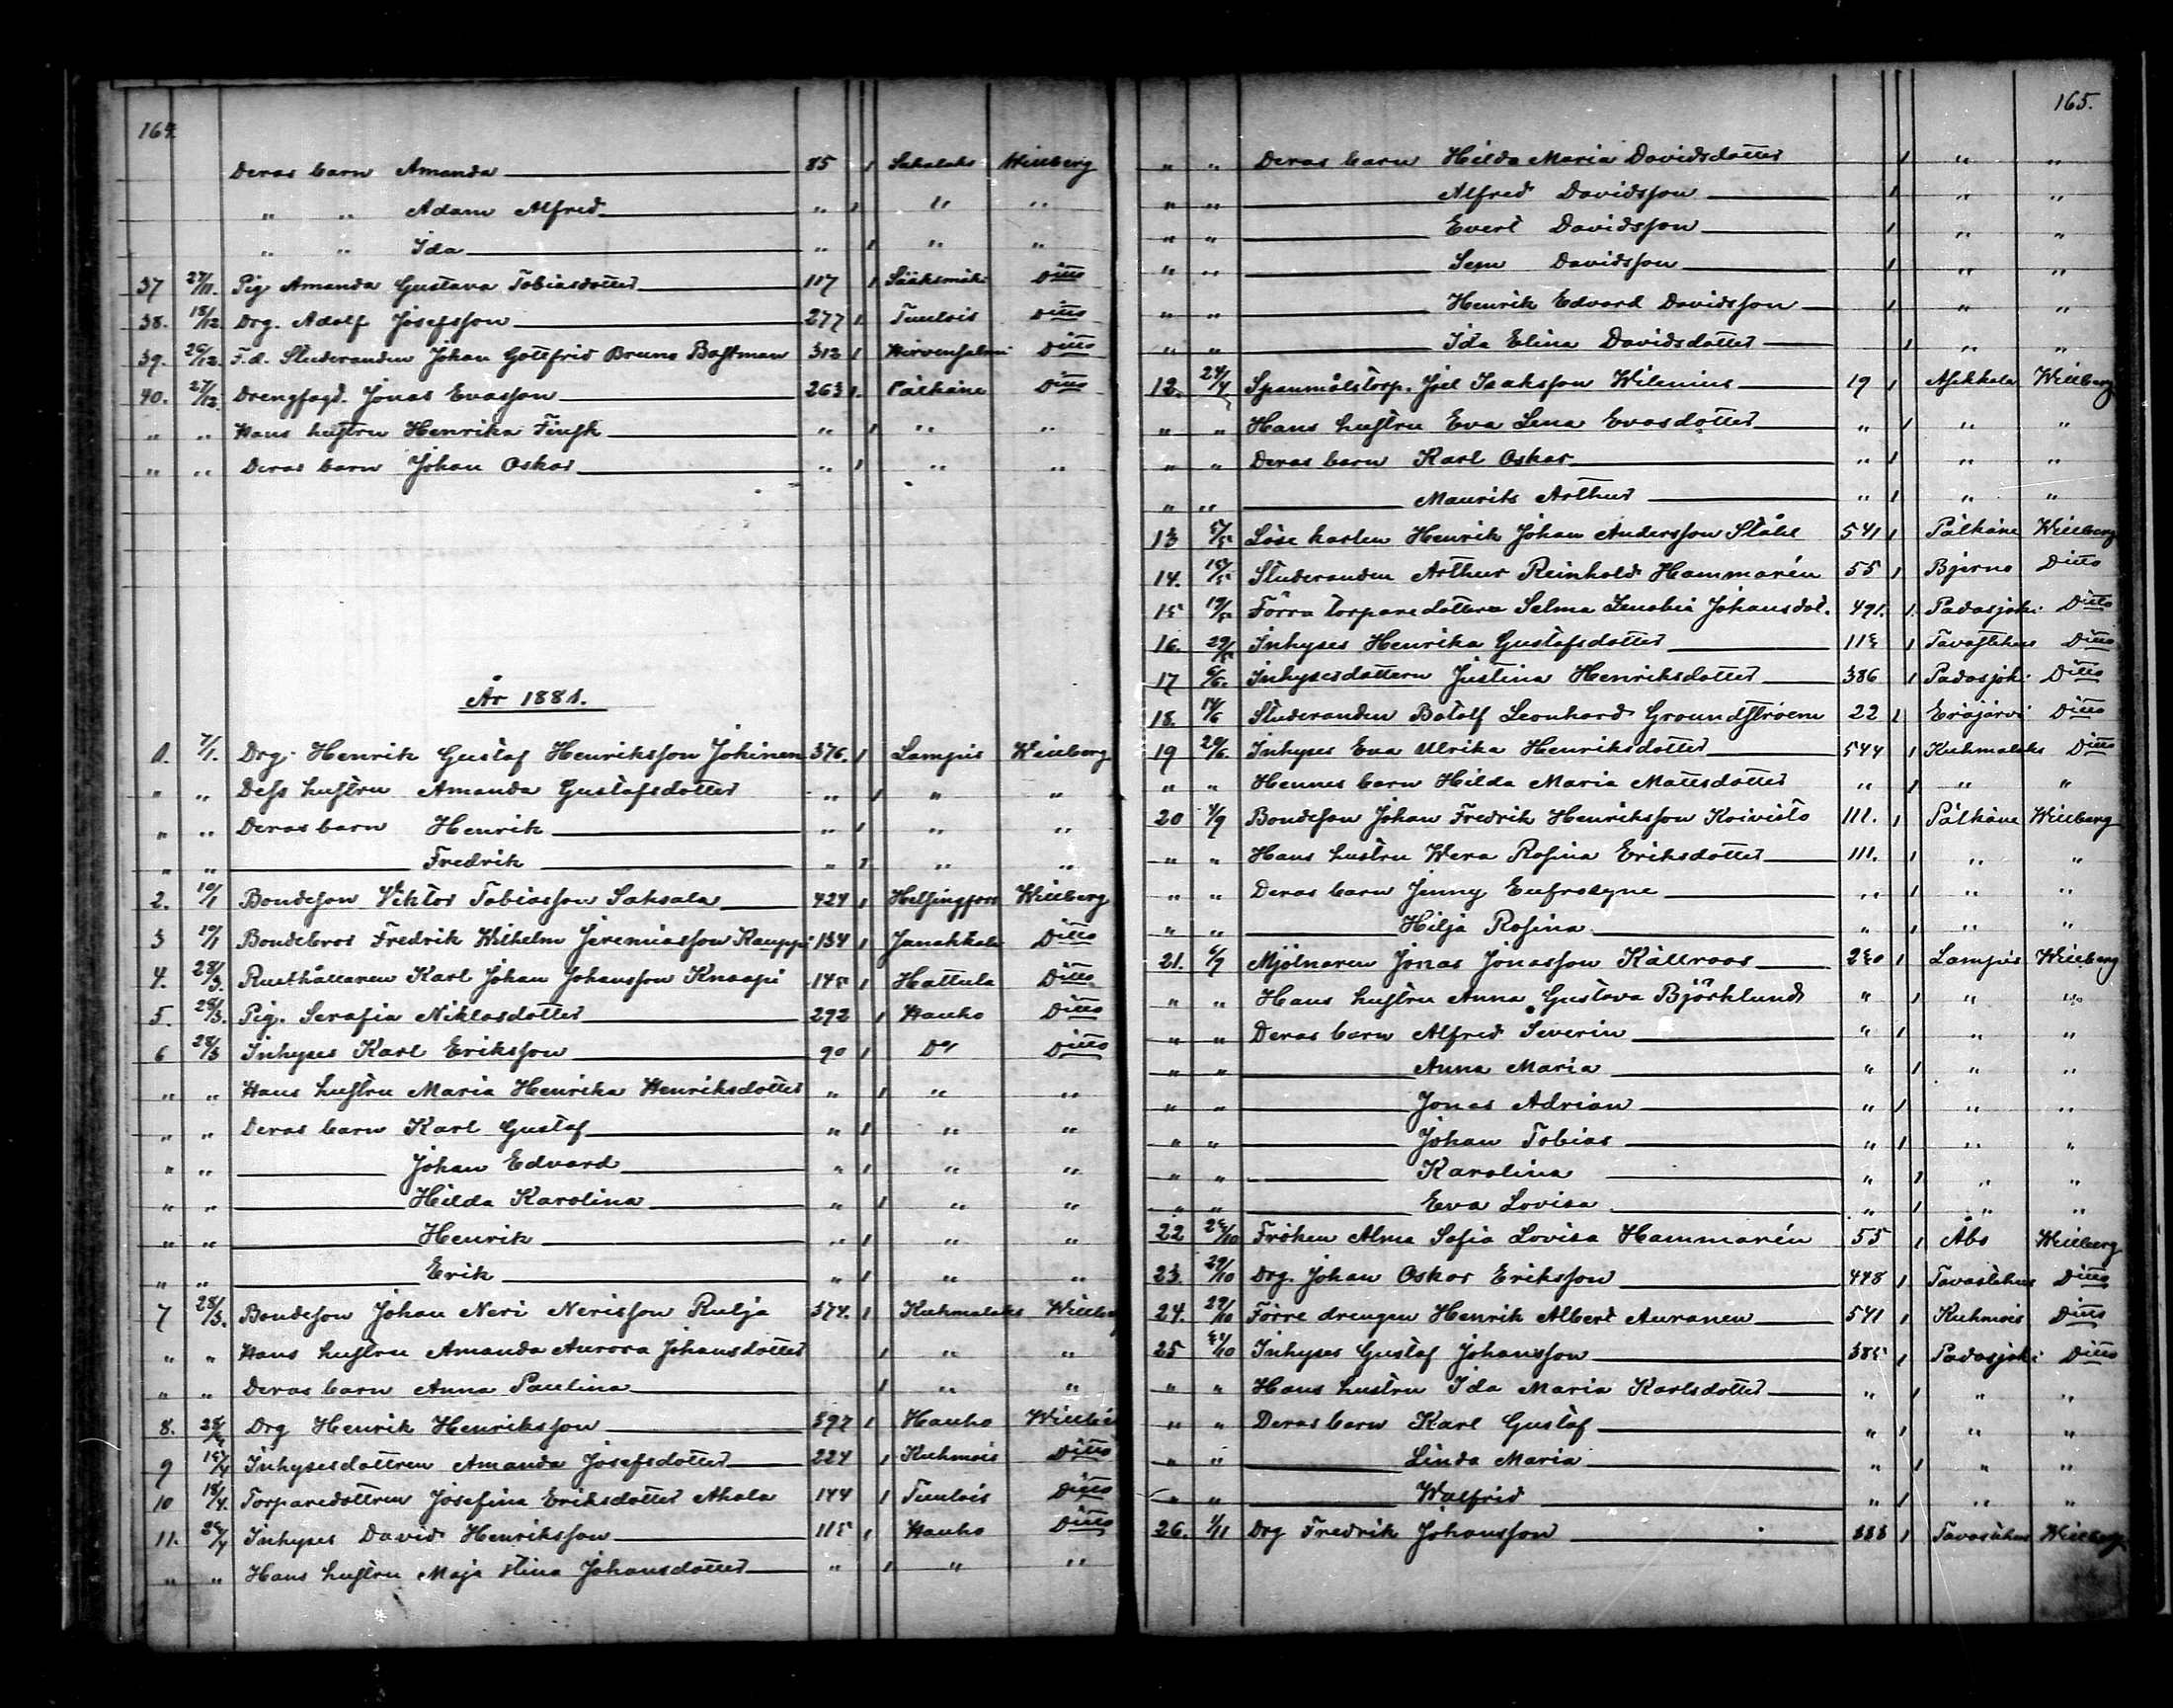 164.
Deras barn Amanda 85 1 Sahalaks Willberg
„ „ Adam Alfred „ 1 „ „
„ „ Ida „ 1 „ „
37 27/11. Pig Amanda Gustava Tobiasdotter 117 1 Sääksmäki Ditto
38. 18/12. Drg. Adolf Josefsson 277 1 Tuulois Ditto
39. 26/12. F.d. Studeranden Johan Gottfrid Bruno Bastman 312 1 Hirvensalmi Ditto
40. 27/12. Drengfogd. Jonas Evasson 263 1 Pälkäne Ditto
„ „ Hans hustru Henrika Finsk „ 1 „ „
„ „ Deras barn Johan Oskar „ 1 „ „
År 1881.
1. 7/1. Drg. Henrik Gustaf Henriksson Jokinen 376. 1 Lampis Willberg
„ „ Dess hustru Amanda Gustafsdotter „ 1 „ „
„ „ Deras barn Henrik „ 1 „ „
„ „ Fredrik „ 1 „ „
2. 10/1 Bondeson Viktor Tobiasson Saksala 424 1 Helsingfors Willberg
3 19/1 Bondebror Fredrik Wilhelm Jeremiasson Kauppi 134 1 Janakkala Ditto
4. 28/3. Rusthållaren Karl Johan Johansson Knaapi 145 1 Hattula Ditto
5. 28/3. Pig. Serafia Niklasdotter 292 1 Hauho Ditto
6 28/3 Inhyses Karl Eriksson 90 1 Do Ditto
„ „ Hans hustru Maria Henrika Henriksdotter „ 1 „ „
„ „ Deras barn Karl Gustaf „ 1 „ „
„ „ Johan Edvard „ 1 „ „
„ „ Hilda Karolina „ 1 „ „
„ „ Henrik „ 1 „ „
„ „ Erik „ 1 „ „
7 28/3. Bondeson Johan Neri Nerisson Rulja 374. 1 Kuhmalaks Willberg
„ „ Hans hustru Amanda Aurora Johansdotter 1 „ „
„ „ Deras barn Anna Paulina 1 „ „
8. Drg Henrik Henriksson 397 1 Hauho Willbe
9 15/4 Inhysesdottren Amanda Josefsdotter 224 1 Kuhmois Ditto
10 18/4. Torparedottren Josefina Eriksdotter Ahala 144 1 Tuulois Ditto
11. Inhyses David Henriksson 115 1 Hauho Ditto
„ „ Hans hustru Maja Stina Johansdotter „ 1 „ „
165.
„ „ Deras barn Hilda Maria Davidsdotter 1 „ „
„ „ Alfred Davidsson 1 „ „
„ „ Evert Davidsson 1 „ „
„ „ Sem Davidsson 1 „ „
„ „ Henrik Edvard Davidsson 1 „ „
„ „ Ida Elina Davidsdotter 1 „ „
12. 24/4. Spanmålstorp. Joel Isaksson Wilenius 19 1 Asikkala Willberg
„ „ Hans hustru Eva Lena Evasdotter „ 1 „ „
„ „ Deras barn Karl Oskar „ 1 „ „
„ „ Maurits Arthur „ 1 „ „
13 5/5 Löse karlen Henrik Johan Andersson Ståhl 541 1 Pälkäne Willberg
14. 15/5 Studeranden Arthur Reinhold Hammarén 55 1 Bjerno Ditto
15 19/5 Förra torparedottern Selma Zenobia Johansdot. 491. 1 Padasjoki Ditto
16. 29/5 Inhyses Henrika Gustafsdotter 115 1 Tavastehus Ditto
17 6/6. Inhysesdottern Justina Henriksdotter 386 1 Padasjoki Ditto
18. 14/6 Studeranden Botolf Leonhard Groundstroem 22 1 Eräjärvi Ditto
19 20/6. Inhyses Eva Ulrika Henriksdotter 544 1 Kuhmalaks Ditto
„ „ Hennes barn Hilda Maria Mattsdotter „ 1 „ „
20 Bondeson Johan Fredrik Henriksson Koivisto 111. 1 Pälkäne Willberg
„ „ Hans hustru Wera Rosina Eriksdotter 111. 1 „ „
„ „ Deras barn Jenny Eufrosyne „ 1 „ „
„ „ Hilja Rosina „ 1 „ „
21. Mjölnaren Jonas Jonasson Källroos 230 1 Lampis Willberg
„ „ Hans hustru Anna Gustava Björklund „ 1 „ „
„ „ Deras barn Alfred Severin „ 1 „ „
„ „ Anna Maria „ 1 „ „
„ „ Jonas Adrian „ 1 „ „
„ „ Johan Tobias „ 1 „ „
„ „ Karolina „ 1 „ „
„ „ Eva Lovisa „ 1 „ „
22 Fröken Alma Sofia Lovisa Hammarén 55 1 Åbo Willberg
23. 29/10 Drg. Johan Oskar Eriksson 448 1 Tavastehus Ditto
24. 29/10 Förre drengen Henrik Albert Auranen 541 1 Kuhmois Ditto
25 31/10 Inhyses Gustaf Johansson 385 1 Padasjoki Ditto
„ „ Hans hustru Ida Maria Karlsdotter „ 1 „ „
„ „ Deras barn Karl Gustaf „ 1 „ „
„ „ Linda Maria „ 1 „ „
„ „ Walfrid „ 1 „ „
26. 1/11 Drg Fredrik Johansson 333 1 Tavastehus Willberg